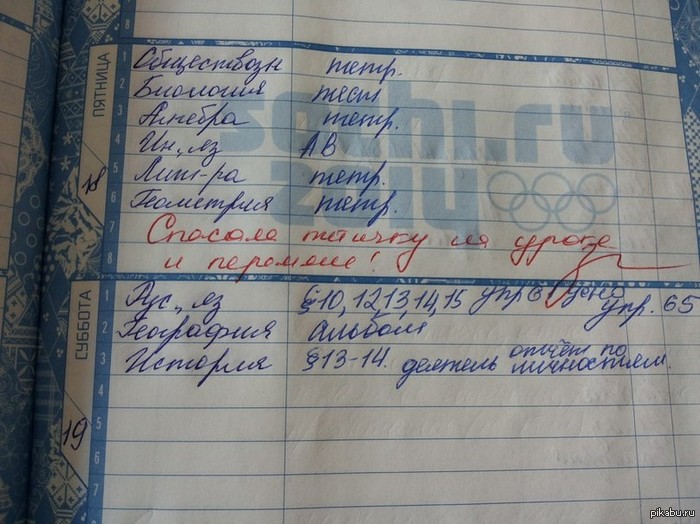 8
ПЯТНИЦА
18
1 Обществозн тетр.
2 Биология тест
3 Алгебра тетр.
4 Ин. яз АВ
5 Лит-ра тетр.
6 Геометрия тетр.
7 Спасала птичку на уроке
8 и перемене!
sochi.ru
2014
СУББОТА
19
1 Рус. яз §10, 12, 13, 14, 15 упр 6 устно упр. 65
2 География альбом
3 История §13-14. деятель отчёт по личностям.
4
5
6
7
8
pikabu.ru